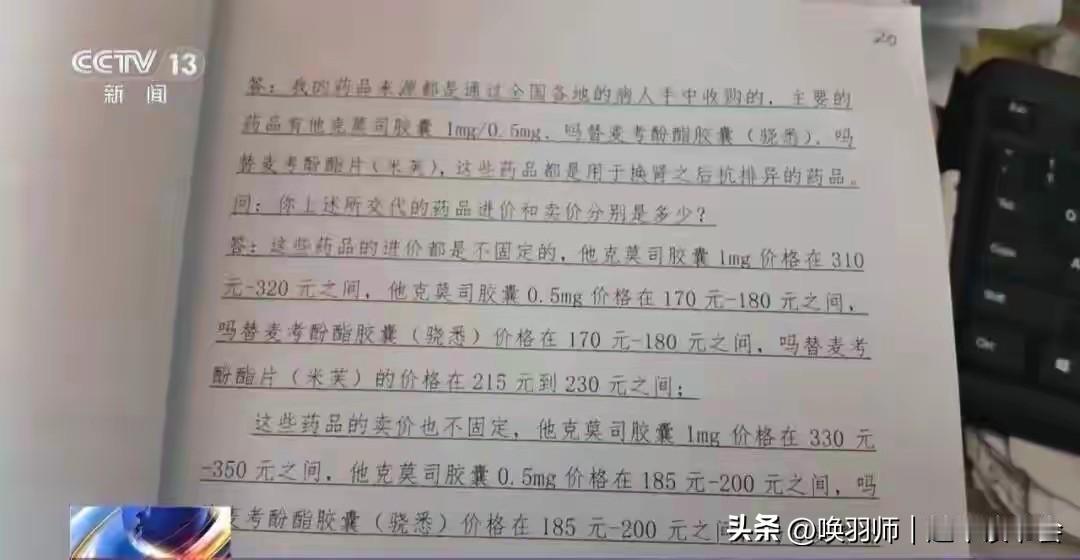 CCTV 13
新闻
20
答：我的药品来源都是通过全国各地的病人手中收购的，主要的
药品有他克莫司胶囊 1mg/0.5mg、吗替麦考酚酯胶囊（骁悉）、吗
替麦考酚酯片（米芙），这些药品都是用于换肾之后抗排异的药品。
问：你上述所交代的药品进价和卖价分别是多少？
答：这些药品的进价都是不固定的，他克莫司胶囊 1mg 价格在 310
元-320 元之间，他克莫司胶囊 0.5mg 价格在 170 元-180 元之间，
吗替麦考酚酯胶囊（骁悉）价格在 170 元-180 元之间，吗替麦考
酚酯片（米芙）的价格在 215 元到 230 元之间；
这些药品的卖价也不固定，他克莫司胶囊 1mg 价格在 330 元
-350 元之间，他克莫司胶囊 0.5mg 价格在 185 元-200 元之间，吗
麦考酚酯胶囊（骁悉）价格在 185 元-200 元之间
头条 @唤羽师